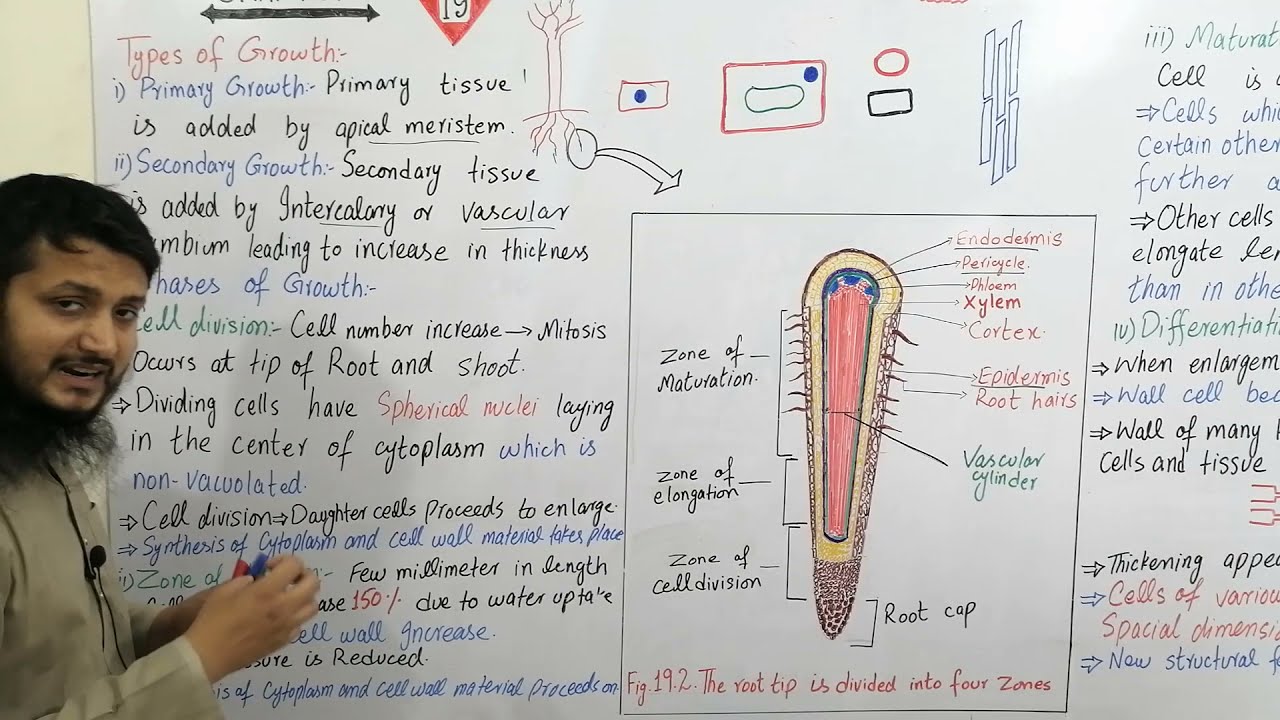 19
Types of Growth:-
i) Primary Growth:- Primary tissue
is added by apical meristem.
ii) Secondary Growth:- Secondary tissue
is added by Intercalary or vascular
mbium leading to increase in thickness
hases of Growth:-
Cell division:- Cell number increase → Mitosis
Occurs at tip of Root and shoot.
⇒ Dividing cells have Spherical nuclei laying
in the center of cytoplasm which is
non-vacuolated.
⇒ Cell division ⇒ Daughter cells Proceeds to enlarge.
⇒ Synthesis of Cytoplasm and cell wall material takes place
ii) Zone of n:- Few millimeter in length
ase 150% due to water uptake
cell wall Increase.
sure is Reduced.
is of Cytoplasm and cell wall material Proceeds on
Endodermis
Pericycle.
Phloem
Xylem
Cortex.
Epidermis
Root hairs
Vascular
cylinder
Zone of
Maturation.
Zone of
elongation
Zone of
cell division
Root cap
Fig. 19.2. The root tip is divided into four Zones
iii) Maturat
Cell is
⇒ Cells whic
Certain other
further a
⇒ Other cells
elongate len
than in othe
iv) Differentiati
⇒ When enlargem
⇒ Wall cell bec
⇒ Wall of many
Cells and tissue
⇒ Thickening appea
⇒ Cells of variou
Spacial dimensi
⇒ New structural f